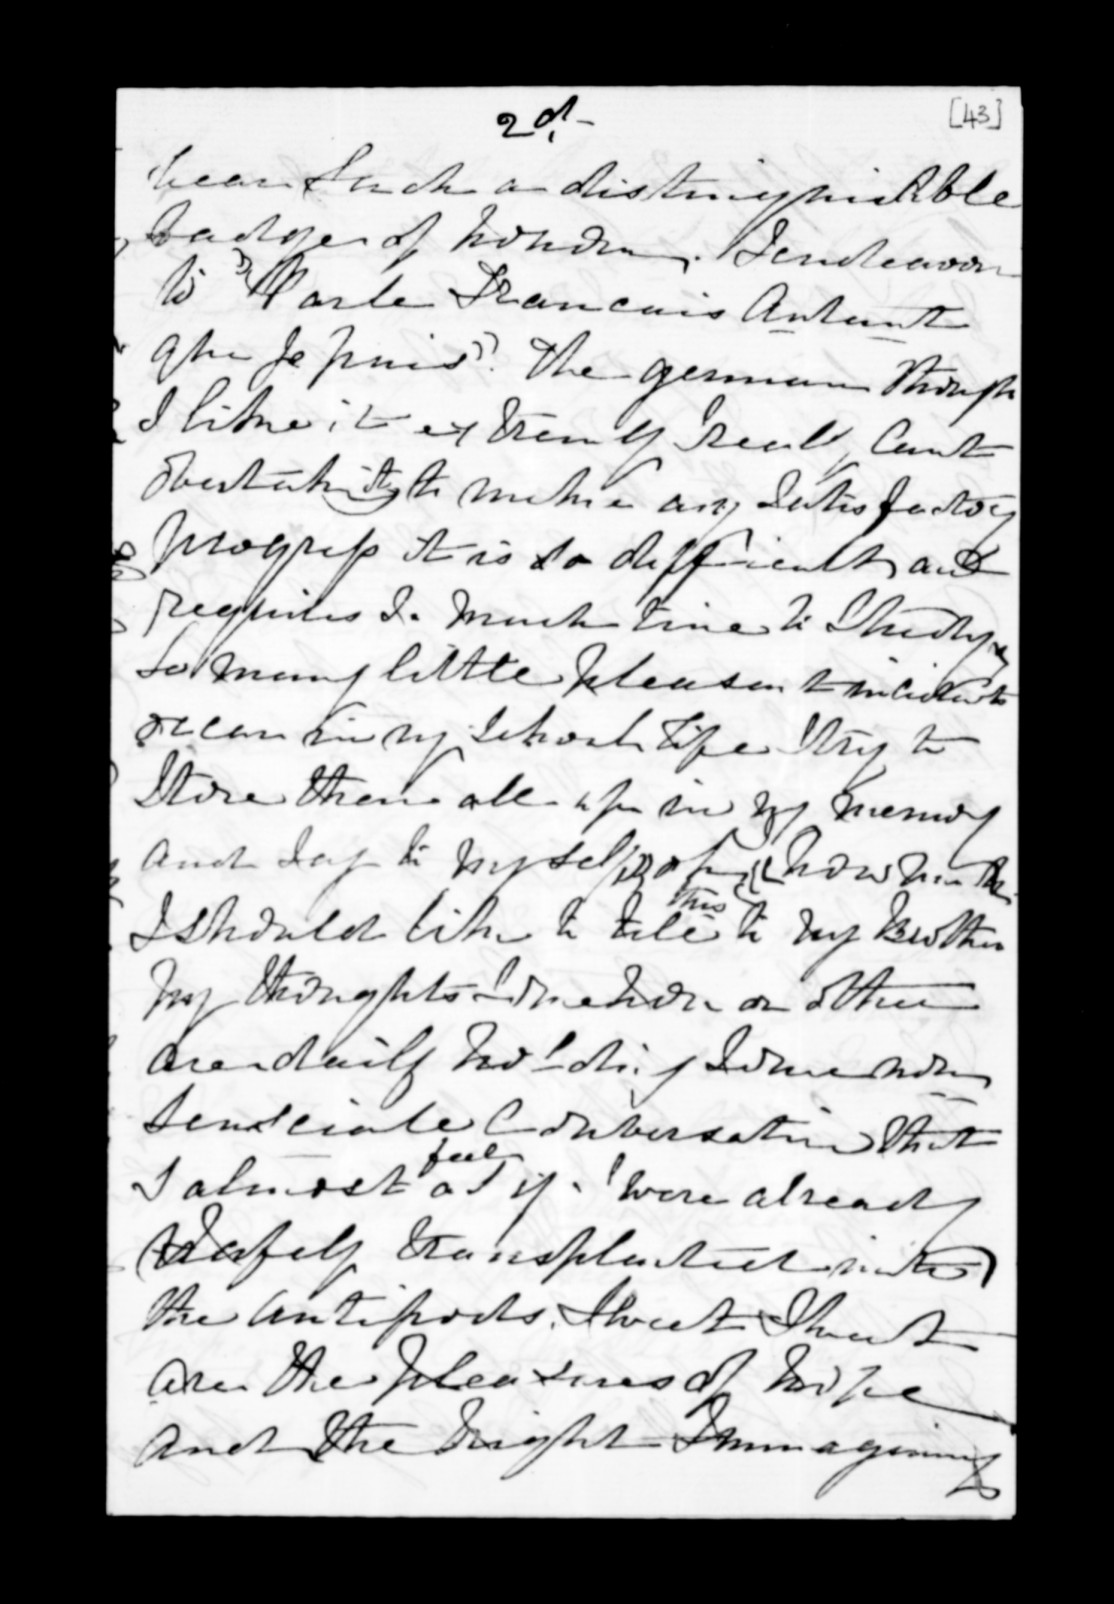 2d.
[43]
bear such a distinguishable
badge of honour. I endeavour
to "Parle Francais Autant
que Je puis". The german though
I like it extremely I really Cant
to make any Satisfactory
progress it is so difficult and
requires So much time to Study
So many little pleasant incidents
occur in my School life I try to
Store them all up in my memory
and say to myself oh how much
I should like to tell this to my Brother
my thoughts Some how or other
are daily holding Some non
Conversation that
I almost feel as if I were already
Safely transplanted into
the antipods. Sweet Sweet
are the pleasures of hope
and the bright Immaginings